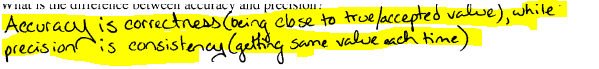 What is the difference between accuracy and precision?
Accuracy is correctness (being close to true/accepted value), while
precision is consistency (getting same value each time)